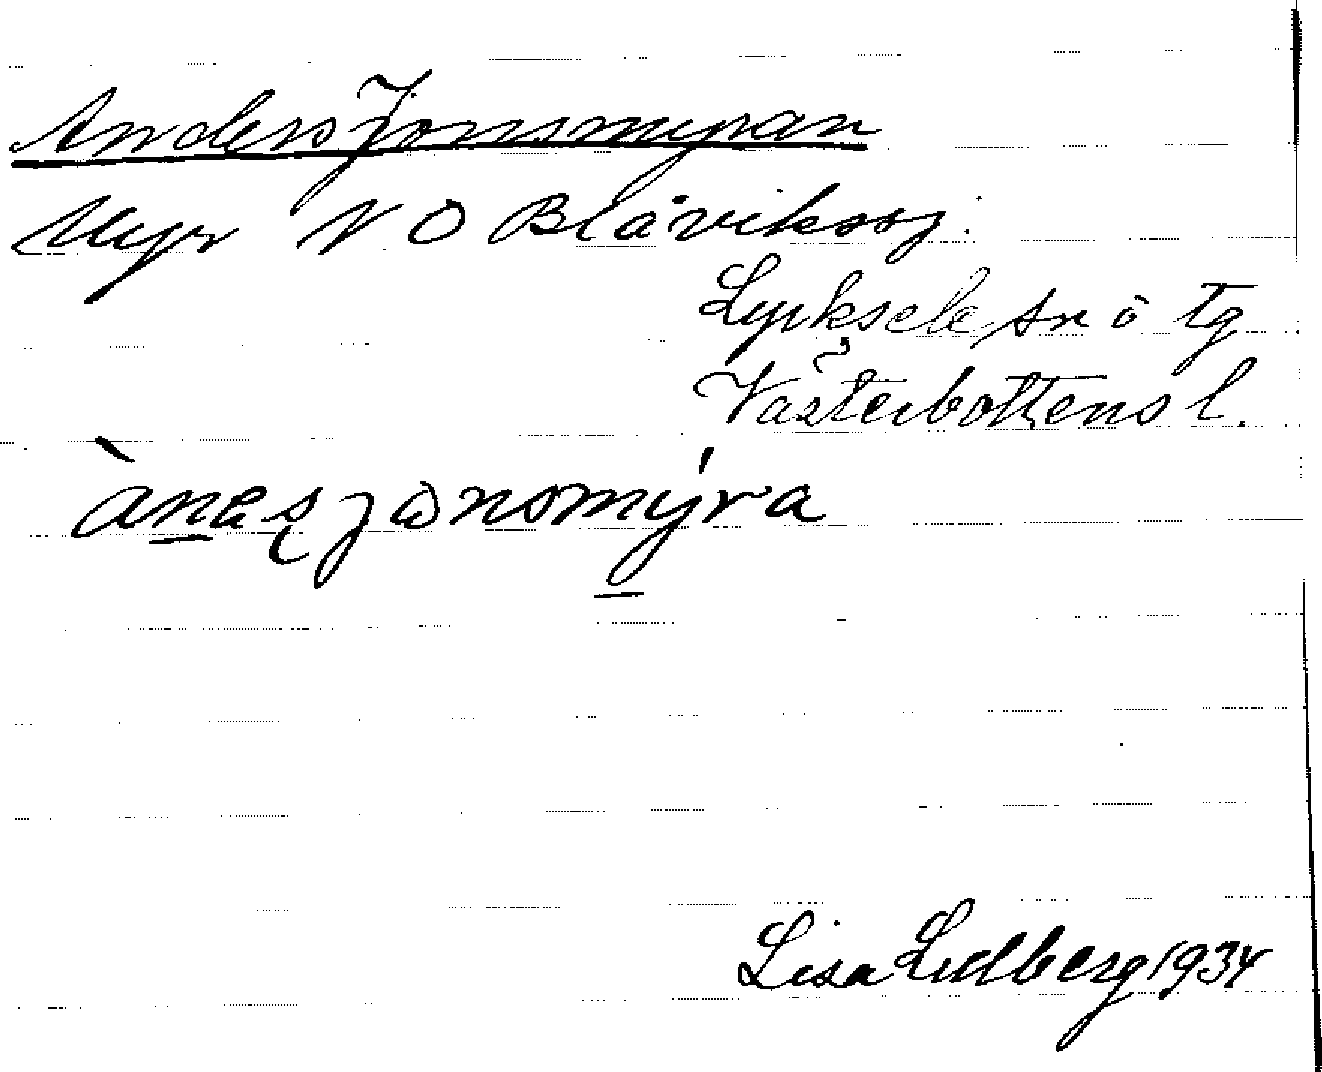 Anders Jonsmyran
Myr N O Blåvikssj.
Lycksele sn o tg
Västerbottens l.
ànesjonsmýra
Lisa Lidberg 1934